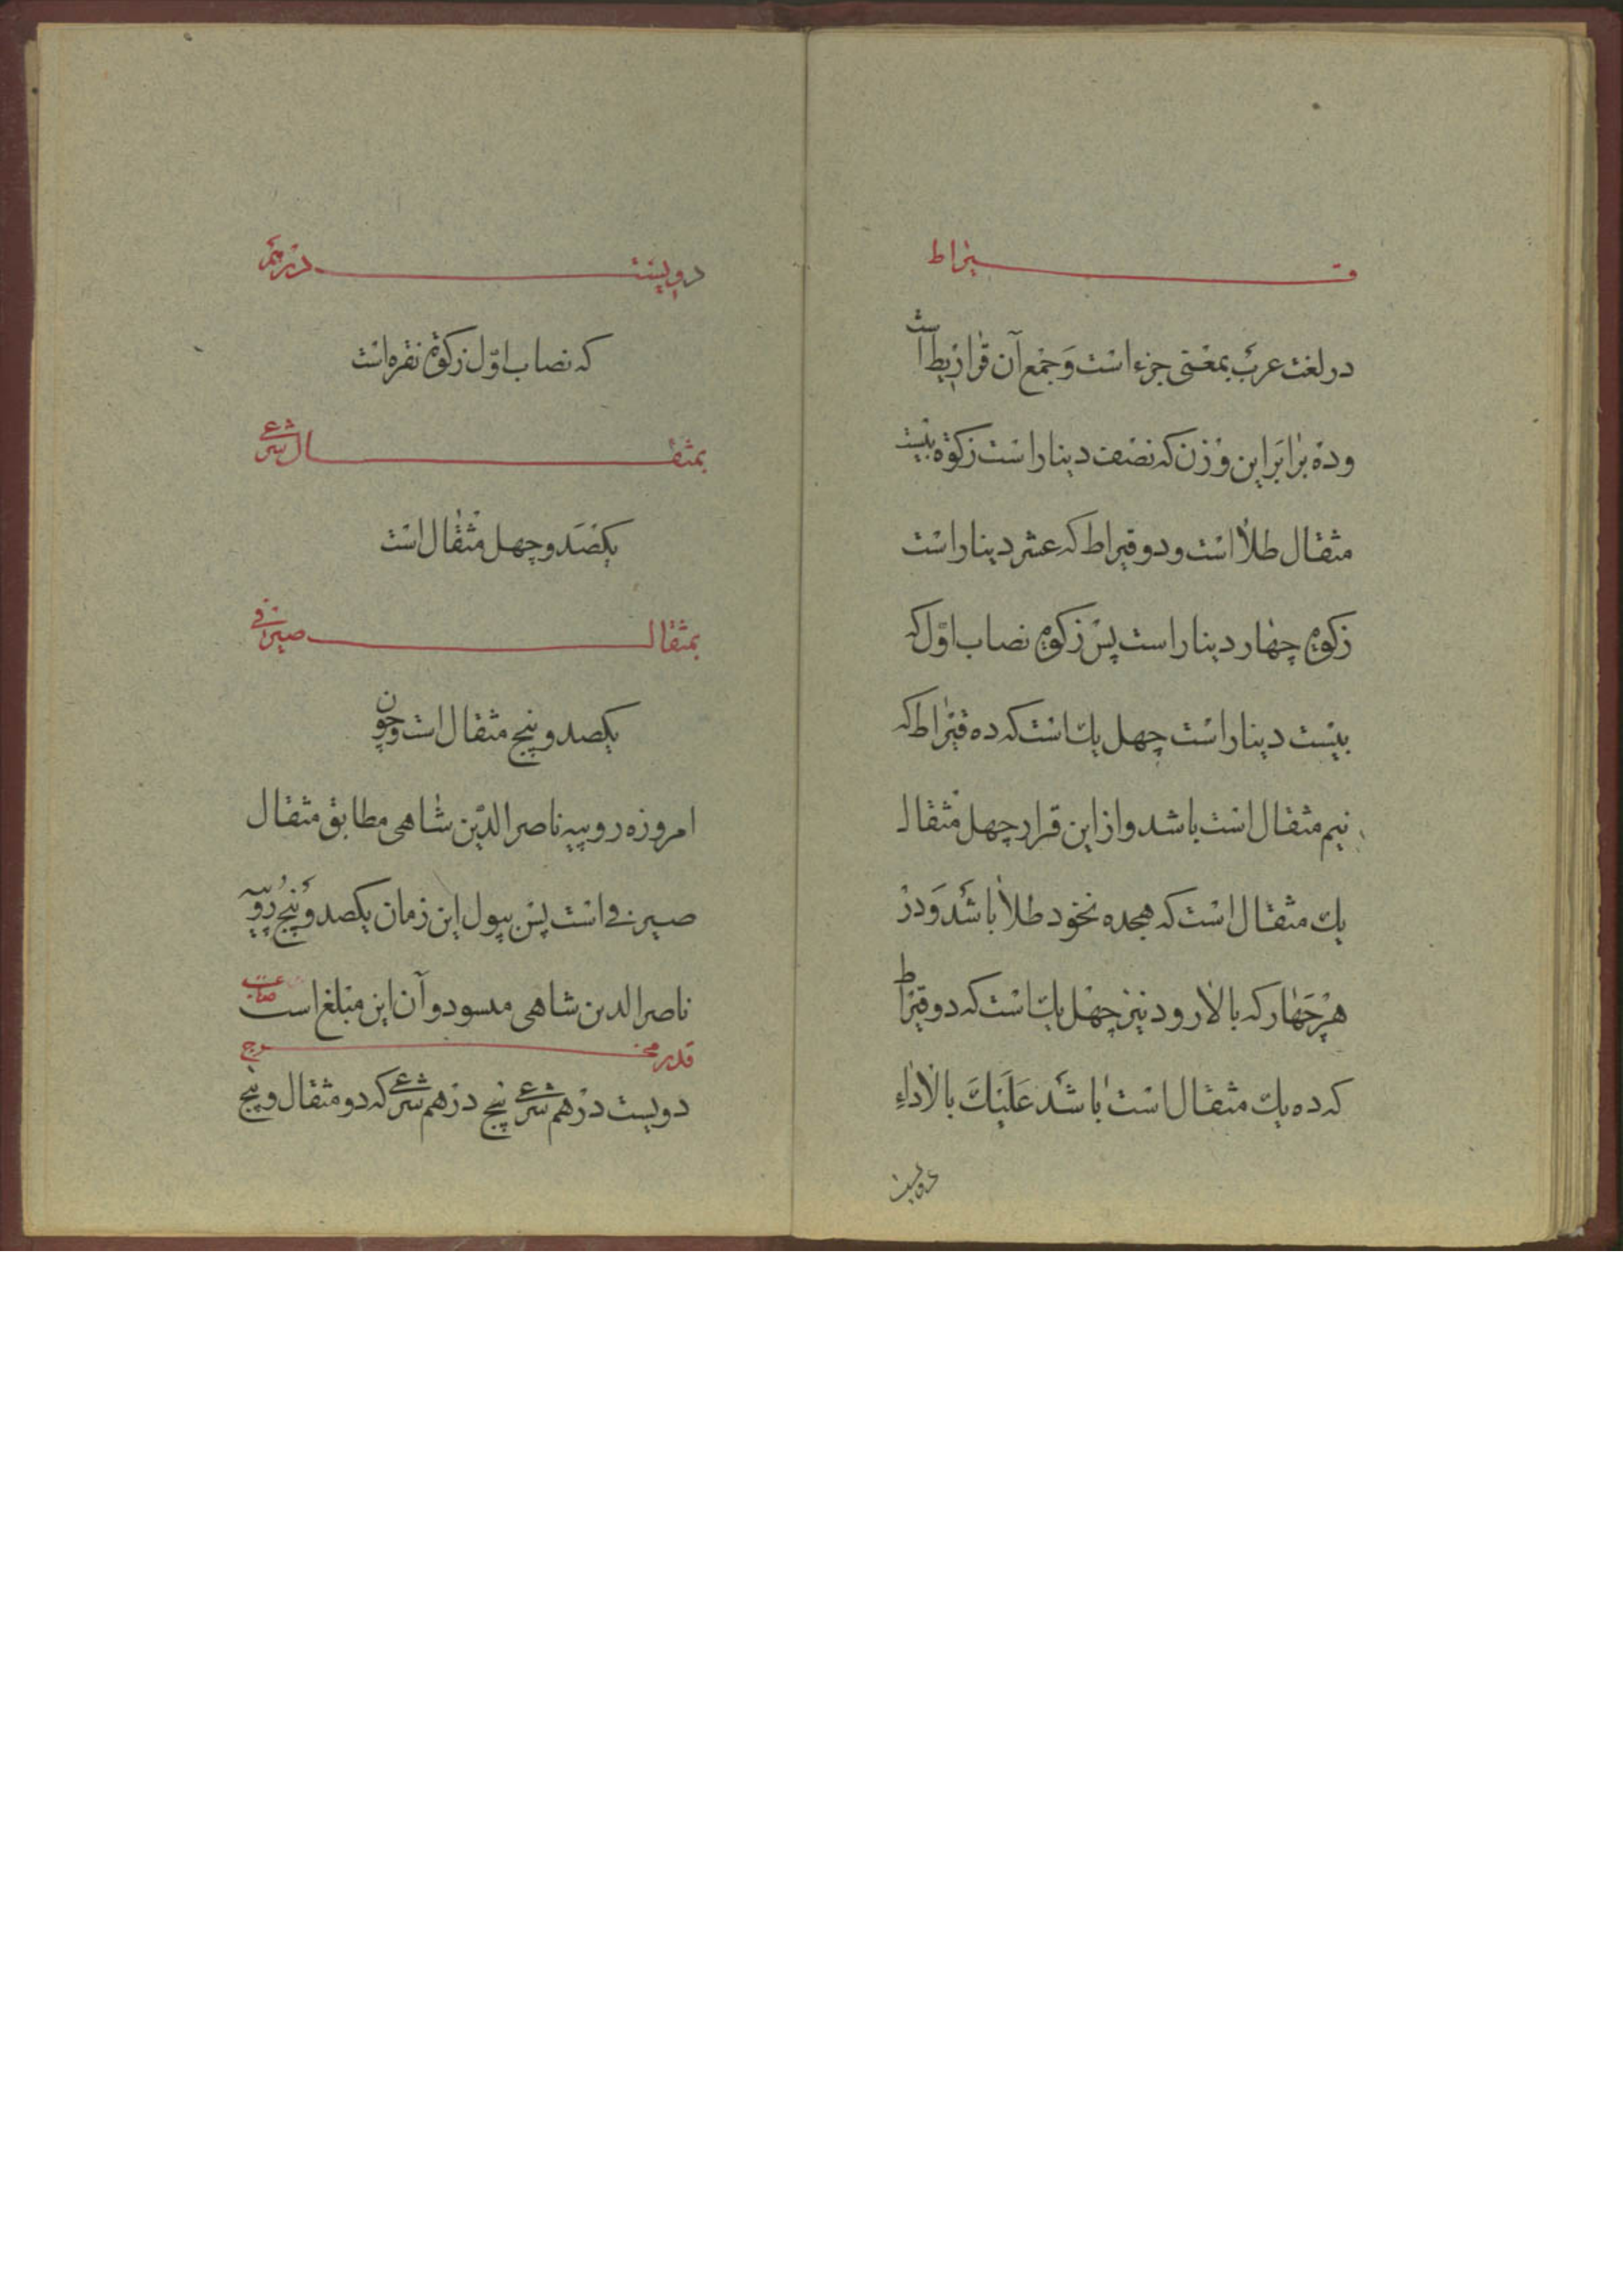 قیراط
در لغت عرب بمعنی جزء است و جمع آن قراریط است
و ده برابر این وزن که نصف دینار است زکوة بیست
مثقال طلا است و دو قیراط که عشر دینار است
زکوة چهار دینار است پس زکوة نصاب اوّل که
بیست دینار است چهل یک است که ده قیراط که
نیم مثقال است باشد و از این قرار چهل مثقال
یک مثقال است که هجده نخود طلا باشد و در
هر چهار که بالا رود نیز چهل یک است که دو قیراط
که ده یک مثقال است باشد علیک بالاداء
دویست
دویست درهم
که نصاب اوّل زکوة نقره است
بمثقال شرعی
یکصد و چهل مثقال است
بمثقال صیرفی
یکصد و پنج مثقال است و چون
امروزه روپیه ناصر الدّین شاهی مطابق مثقال
صیرفی است پس بپول این زمان یکصد و پنج روپیه
ناصر الدین شاهی میسود و آن این مبلغ است
قدر مخرج
دویست درهم شرعی پنج درهم شرعی که دو مثقال و پنج